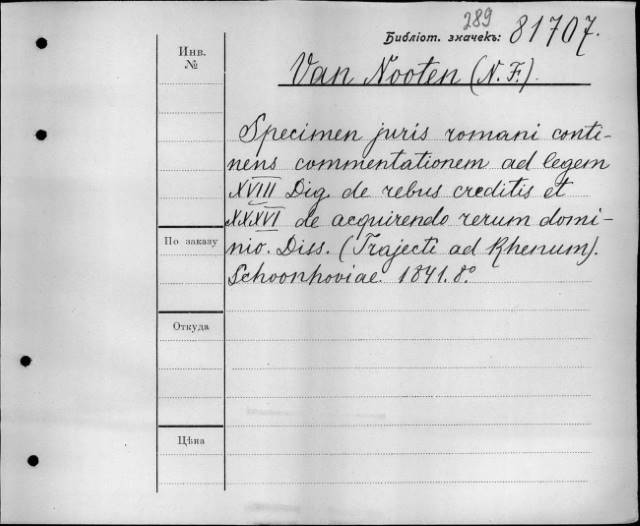 289
Библіот. значекъ: 81707.
Инв.
№
Van Nooten (N. F.).
Specimen juris romani conti-
nens commentationem ad legem
XVIII Dig. de rebus creditis et
XXXVI de acquirendo rerum domi-
nio. Diss. (Trajecti ad Rhenum).
Schoonhoviae. 1841. 8.º
По заказу
Откуда
Цѣна